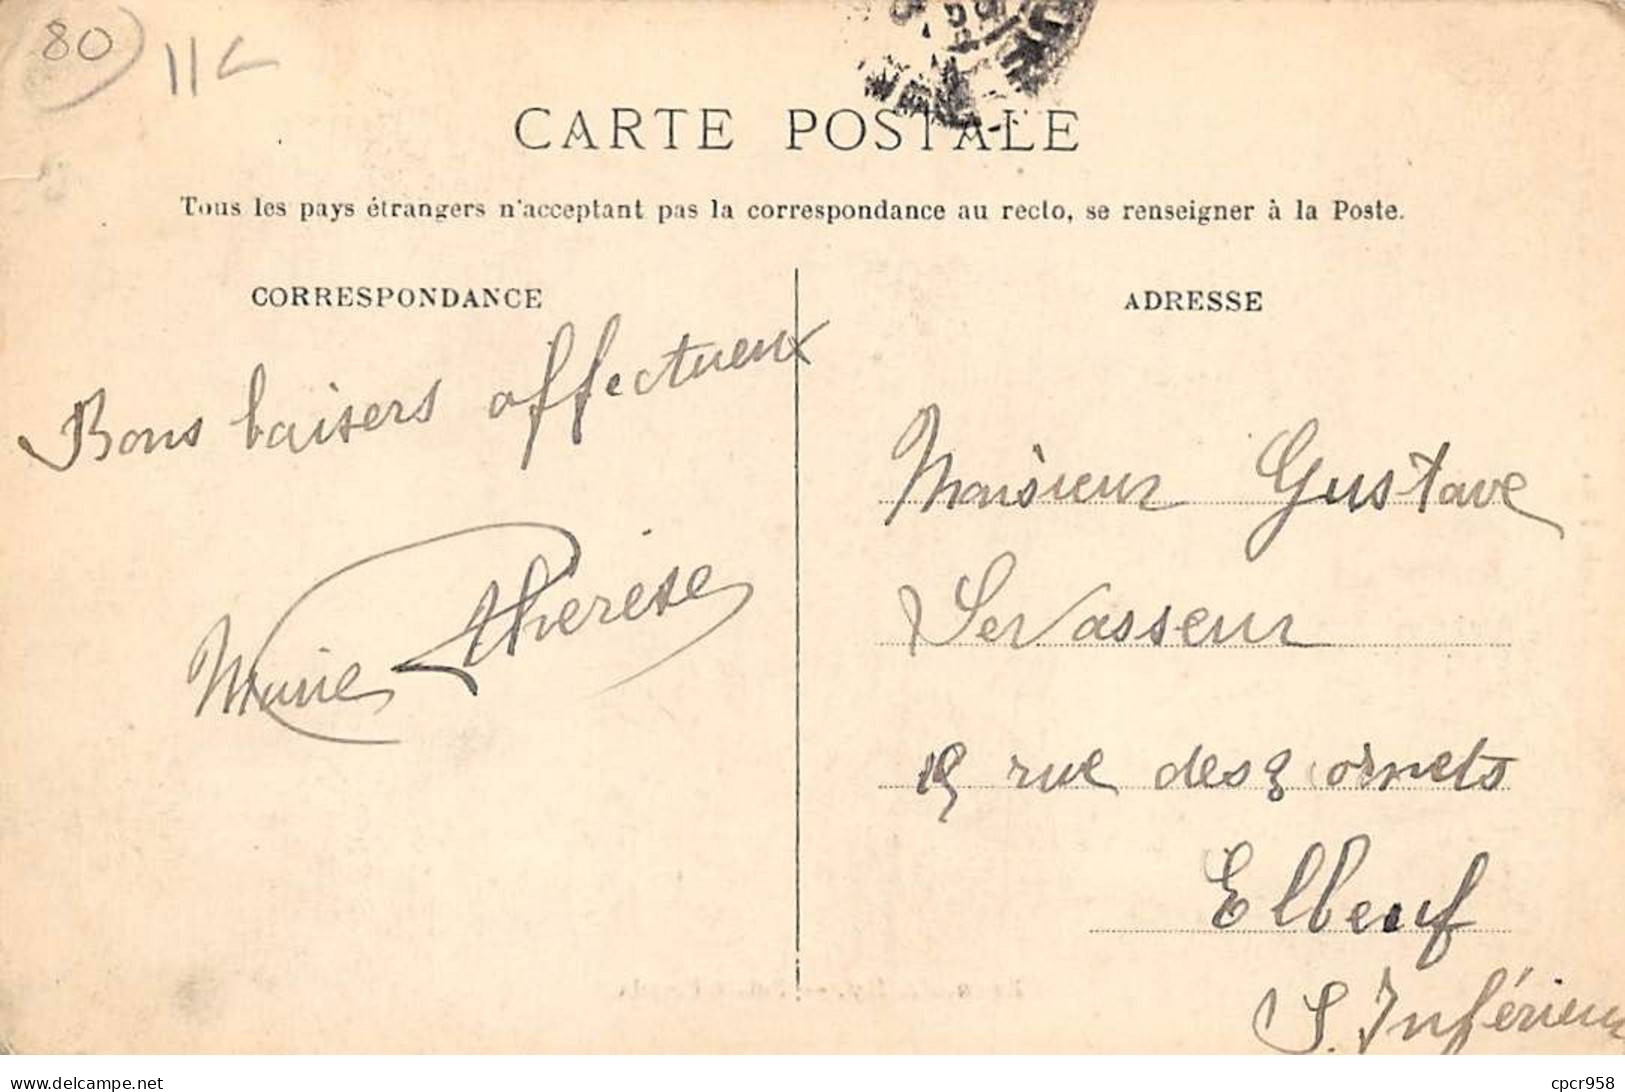 80
11
CARTE POSTALE
Tous les pays étrangers n'acceptant pas la correspondance au recto, se renseigner à la Poste.
CORRESPONDANCE
Bons baisers affectueux
Marie Thérèse
ADRESSE
Monsieur Gustave
Levasseur
19 rue des 3 cornets
Elbeuf
S. Inférieure
www.delcampe.net
cpcr958